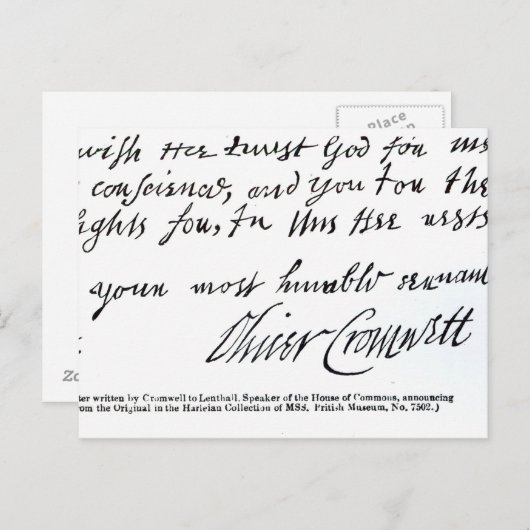 Place
wish Hee trust God for
conscience, and you for the
fights for, In this Hee rests
your most humble servant
Oliver Cromwell
ter written by Cromwell to Lenthall, Speaker of the House of Commons, announcing
rom the Original in the Harleian Collection of MSS. British Museum, No. 7502.)